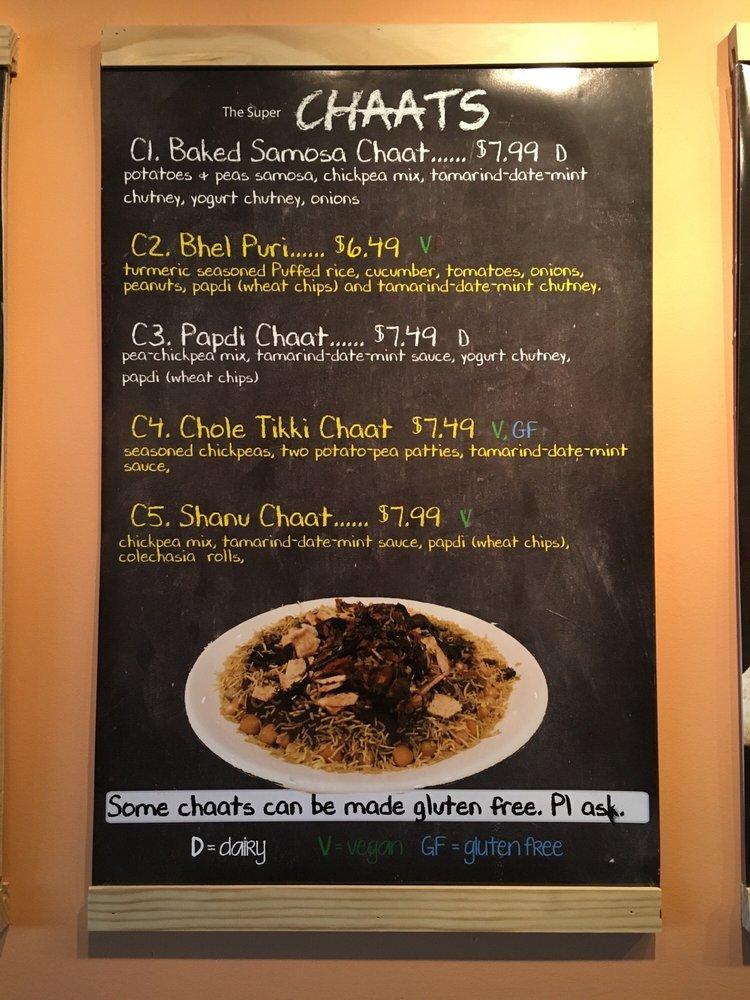 The Super CHAATS
C1. Baked Samosa Chaat...... $7.99 D
potatoes + peas samosa, chickpea mix, tamarind-date-mint
chutney, yogurt chutney, onions
C2. Bhel Puri...... $6.49 V
turmeric seasoned Puffed rice, cucumber, tomatoes, onions,
peanuts, papdi (wheat chips) and tamarind-date-mint chutney.
C3. Papdi Chaat...... $7.49 D
pea-chickpea mix, tamarind-date-mint sauce, yogurt chutney,
papdi (wheat chips)
C4. Chole Tikki Chaat $7.49 V, GF
seasoned chickpeas, two potato-pea patties, tamarind-date-mint
sauce,
C5. Shanu Chaat...... $7.99 V
chickpea mix, tamarind-date-mint sauce, papdi (wheat chips),
colechasia rolls,
Some chaats can be made gluten free. Pl ask.
D = dairy V = vegan GF = gluten free